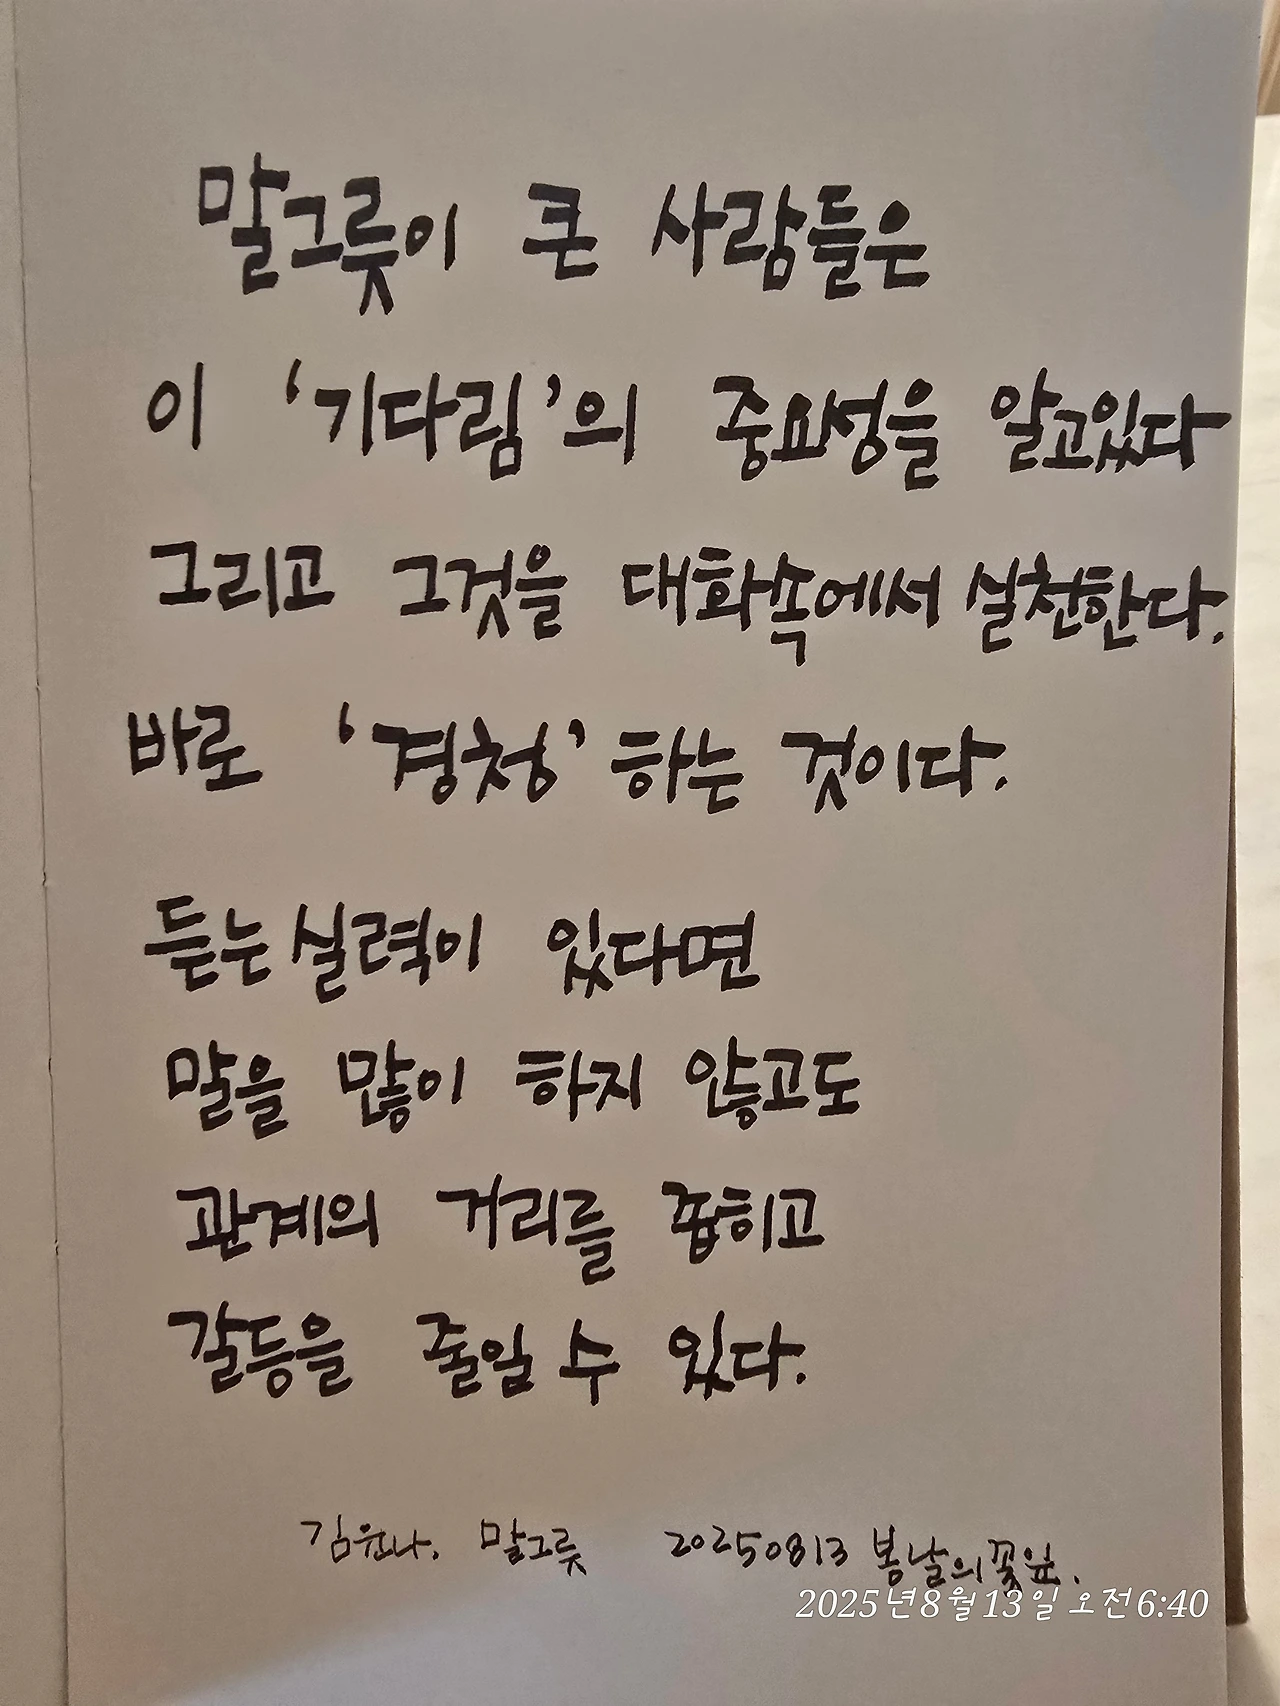 말그릇이 큰 사람들은
이 '기다림'의 중요성을 알고있다
그리고 그것을 대화속에서 실천한다.
바로 '경청'하는 것이다.
듣는 실력이 있다면
말을 많이 하지 않고도
관계의 거리를 좁히고
갈등을 줄일 수 있다.
김윤나. 말그릇 20250813 봄날의꽃잎.
2025년 8월 13일 오전 6:40